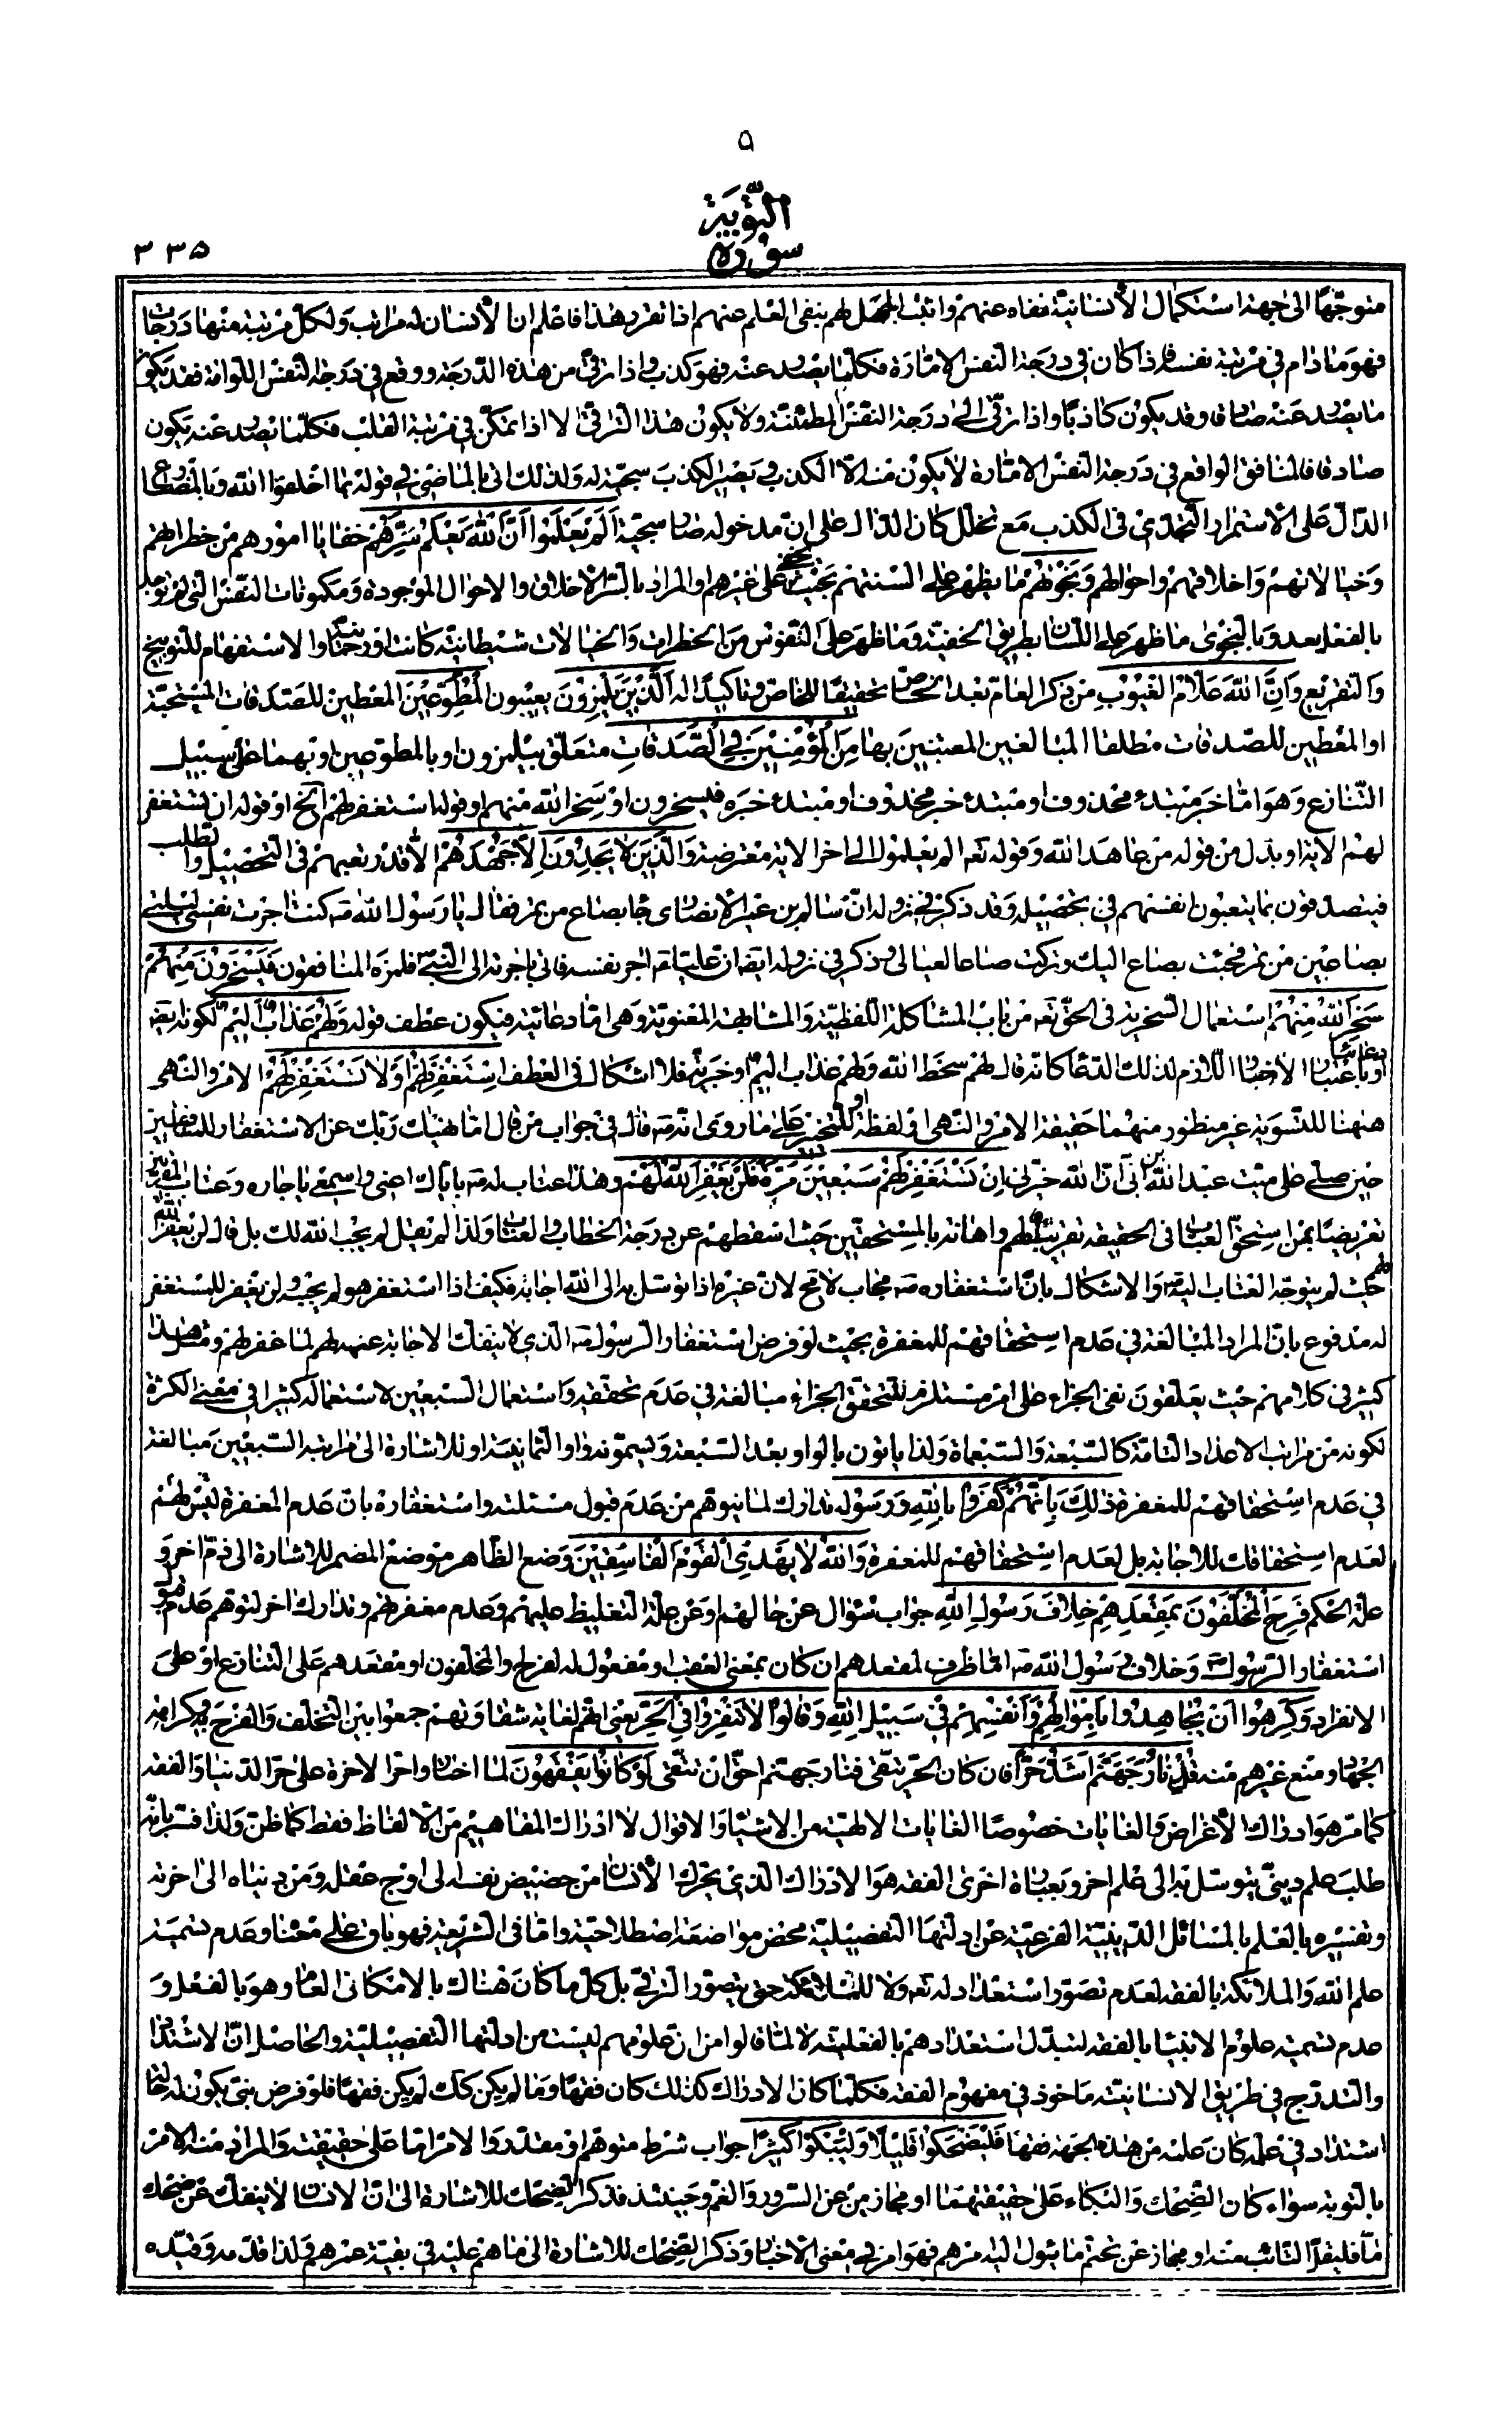 ۵
سورة التّوبَة
٣٣۵
متوجّهًا الى جهة استكمال الأنسانيّة نفاه عنهم واثبت الجهل لهم بنفى العلم عنهم اذا تقرر هذا فاعلم ان الأنسان له مراتب ولكلّ مرتبة منها درجات
فهو مادام فى مرتبة نفسه فاذا كان فى درجة النّفس الامّارة فكلّما يصدر عنه فهو كذب واذا ترقّى من هذه الدّرجة ووقع فى درجة النّفس اللّوامة فقد يكون
ما يصدر عنه صادقا وقد يكون كاذبًا واذا ترقّى الى درجة النّفس المطمئنّة ولا يكون هذا التّرقّى الّا اذا تمكّن فى مرتبة القلب فكلّما يصدر عنه يكون
صادقا فالمنافق الواقع فى درجة النّفس الامّارة لا يكون منه الّا الكذب ويصير الكذب سجيّة له ولذلك اتى بالماضى فى قوله بما اخلفوا الله وبالمضارع
الدّالّ على الاستمرار التّجدّدىّ فى الكذب مع تخلّل كان الدّالّ على انّ مدخوله صار سجيّة اَلَمْ يَعْلَمُوا اَنَّ اللهَ يَعْلَمُ سِرَّهُمْ خفايا امورهم من خطراتهم
وخيالاتهم واخلاقهم واحوالهم وَنَجْوٰيهُمْ ما يظهر على السنتهم بحيث يخفى على غيرهم او المراد بالسّرّ الأخلاق والاحوال الموجودة ومكمونات النّفس الّتى لم توجد
بالفعل بعد وبالنّجوى ما ظهر على اللّسان بطريق الخفية وما ظهر على النّفوس من الخطرات والخيالات شيطانيّة كانت او رحمانيّة والاستفهام للتّوبيخ
والتّقريع وَاَنَّ اللهَ عَلّامُ الْغُيُوبِ من ذكر العامّ بعد الخاصّ تحقيقًا للخاصّ وتاكيدًا له اَلَّذينَ يَلْمِزُونَ يعيبون الْمُطَّوِّعينَ المعطين للصّدقات المستحبّة
او المعطين للصّدقات مطلقا المبالغين المعتنين بها مِنَ الْمُؤْمِنينَ فِى الصَّدَقاتِ متعلّق بيلمزون او بالمطوّعين او بهما على سبيل
التّنازع وهو امّا خبر مبتدء محذوف او مبتدء خبر محذوف او مبتدء خبره فيسخرون او سخر الله منهم او قوله استغفر لهم الخ او قوله ان تستغفر
لهم الاية او بدل من قوله من عاهد الله وقوله تعـ الم يعلموا الى اخر الاية معترضة وَالَّذينَ لا يَجِدُونَ اِلّا جُهْدَهُمْ الّا قدر تعبهم فى التّحصيل والطّلب
فيتصدّقون بما يتعبون انفسهم فى تحصيله وقد ذكر فى نزوله انّ سالم بن عمير الانصارى جاء بصاع من تمر فقال يا رسول الله صـ كنت اجرت نفسى ليلتى
بصاعين من تمر فجئت بصاع اليك وتركت صاعا لعيالى وذكر فى نزوله ايضـ انّ عليّا عـ اجر نفسه فاتى باجرته الى النّبىّ صـ فلمزه المنافقون فَيَسْخَرُونَ مِنْهُمْ
سَخِرَ اللهُ مِنْهُمْ استعمال السّخرية فى الحقّ تعـ من باب المشاكلة اللّفظيّة والمشابهة المعنويّة وهى امّا دعائيّة فيكون عطف قوله وَلَهُمْ عَذابٌ اَليمٌ لكونه ايضـ دعائيّا
او باعتبار الاخبار اللّازم لذلك الدّعاء كانّه قال لهم سخط الله ولهم عذاب اليم او خبريّة فلا اشكال فى العطف اِسْتَغْفِرْ لَهُمْ اَوْ لا تَسْتَغْفِرْ لَهُمْ الامر والنّهى
هيهنا للتّسوية غير منظور منهما حقيقة الامر والنّهى او لفظة او للتّخيير على ما روى انّه صـ قال فى جواب من قال اما نهيك ربّك عن الاستغفار للمنافقين
حين صلّى على ميّت عبد الله بن ابىّ انّ الله خيّرنى اِنْ تَسْتَغْفِرْ لَهُمْ سَبْعينَ مَرَّةً فَلَنْ يَغْفِرَ اللهُ لَهُمْ وهذا عتاب له صـ بايّاك اعنى واسمعى يا جاره وعتاب المقرّبين
تعريضًا بمن استحقّ العتاب فى الحقيقة تقريب لهم واهانة بالمستحقّين حيث اسقطهم عن درجة الخطاب والعتاب ولذا لم يقل لم يجب الله لك بل قال لن يغفر الله
لهم حيث لم يتوجّه العتاب اليه صـ والاشكال بانّ استغفاره صـ مجاب لا مـح لانّ غيره اذا توسّل به الى الله اجابه فكيف اذا استغفر هو لم يجبه ولن يغفر للمستغفر
له مدفوع بانّ المراد المبالغة فى عدم استحقاقهم للمغفرة بحيث لو فرض استغفار الرّسول صـ الّذى لا ينفكّ الاجابة عنه لهم لما غفر لهم ومثل هذا
كثير فى كلامهم حيث يعلّقون نفى الجزاء على امر مستلزم لتحقّق الجزاء مبالغة فى عدم تحقّقه واستعمال السّبعين لاستعماله كثيرا فى معنى الكثرة
لكونه من مراتب الاعداد التّامّة كالسّبعة والسّبعمائة ولذا ياتون بالواو بعد السّبعة ويسمّونه واو الثّمانية او للاشارة الى مراتبه السّبعين مبالغة
فى عدم استحقاقهم للمغفرة ذٰلِكَ بِاَنَّهُمْ كَفَرُوا بِاللهِ وَرَسُولِهِ تدارك لما يتوهّم من عدم قبول مسئلته واستغفاره بانّ عدم المغفرة ليس لهم
لعدم استحقاقك للاجابة بل لعدم استحقاقهم للمغفرة وَاللهُ لا يَهْدِى الْقَوْمَ الْفاسِقينَ وضع الظّاهر موضع المضمر للاشارة الى ذمّ اخر و
علّة الحكم فَرِحَ الْمُخَلَّفُونَ بِمَقْعَدِهِمْ خِلافَ رَسُولِ اللهِ جواب سؤال عن حالهم او عن علّة التّغليظ عليهم وعدم مغفرتهم وتدارك اخر لتوهّم عدم قبول
استغفار الرّسول صـ وخلاف رسول الله صـ امّا ظرف لمقعدهم ان كان بمعنى العقب او مفعول له لفرح والمخلّفون او مقعدهم على التّنازع او على
الانفراد وَكَرِهُوا اَنْ يُجاهِدُوا بِاَمْوالِهِمْ وَاَنْفُسِهِمْ فى سَبيلِ اللهِ وَقالُوا لا تَنْفِرُوا فِى الْحَرِّ يعنى انّهم لغاية شقاوتهم جمعوا بين التّخلّف والفرح به وكراهة
الجهاد ومنع غيرهم منه قُلْ نارُ جَهَنَّمَ اَشَدُّ حَرًّا فان كان الحرّ يتّقى فنار جهنّم احقّ ان تتّقى لَوْ كانُوا يَفْقَهُونَ لما اختاروا حرّ الاخرة على حرّ الدّنيا والفقه
كما مرّ هو ادراك الأغراض والغايات خصوصًا الغايات الالهيّة من الاشياء والاقوال لا ادراك المفاهيم من الالفاظ فقط كما ظنّ ولذا فسّر بانّه
طلب علم دينىّ يتوسّل به الى علم اخر وبعبارة اخرى الفقه هو الادراك الّذى يحرّك الأنسان من حضيض نفسه الى اوج عقله ومن دنياه الى اخرته
وتفسيره بالعلم بالمسائل الدّينيّة الفرعيّة عن ادلّتها التّفصيليّة محض مواضعة اصطلاحيّة وامّا فى الشّريعة فهو باق على معناه وعدم تسمية
علم الله والملائكة بالفقه لعدم تصوّر استعداد له تعـ ولا للملائكة حتى يتصوّر التّرقّى بل كلّ ما كان هناك بالامكان العامّ وهو بالفعل و
عدم تسمية علوم الانبياء بالفقه لتبدّل استعدادهم بالفعليّة لا لما قالوا من انّ علومهم ليست من ادلّتها التّفصيليّة والحاصل انّ الاشتداد
والتّدرّج فى طريق الانسانيّة ماخوذ فى مفهوم الفقه فكلّما كان الادراك كذلك كان فقهًا وما لم يكن كـك لم يكن فقهًا فلو فرض نبىّ يكون له حالة
اشتداد فى علمه كان علمه من هذه الجهة فقها فَلْيَضْحَكُوا قَليلًا وَلْيَبْكُوا كَثيرًا جواب شرط متوهّم او مقدّر والامر امّا على حقيقته والمراد منه الامر
بالتّوبة سواء كان الضّحك والبكاء على حقيقتهما او مجازين عن السّرور والغمّ وحينئذ فذكر الضّحك للاشارة الى انّ الانسان لا ينفكّ عن ضحك
مّا فليقرّ التّائب منه او مجاز عن تحتّم ما يئول اليه امرهم فهو امر فى معنى الاخبار وذكر الضّحك للاشارة الى ما هم عليه فى بقيّة عمرهم ولذا قدّمه وقيّده